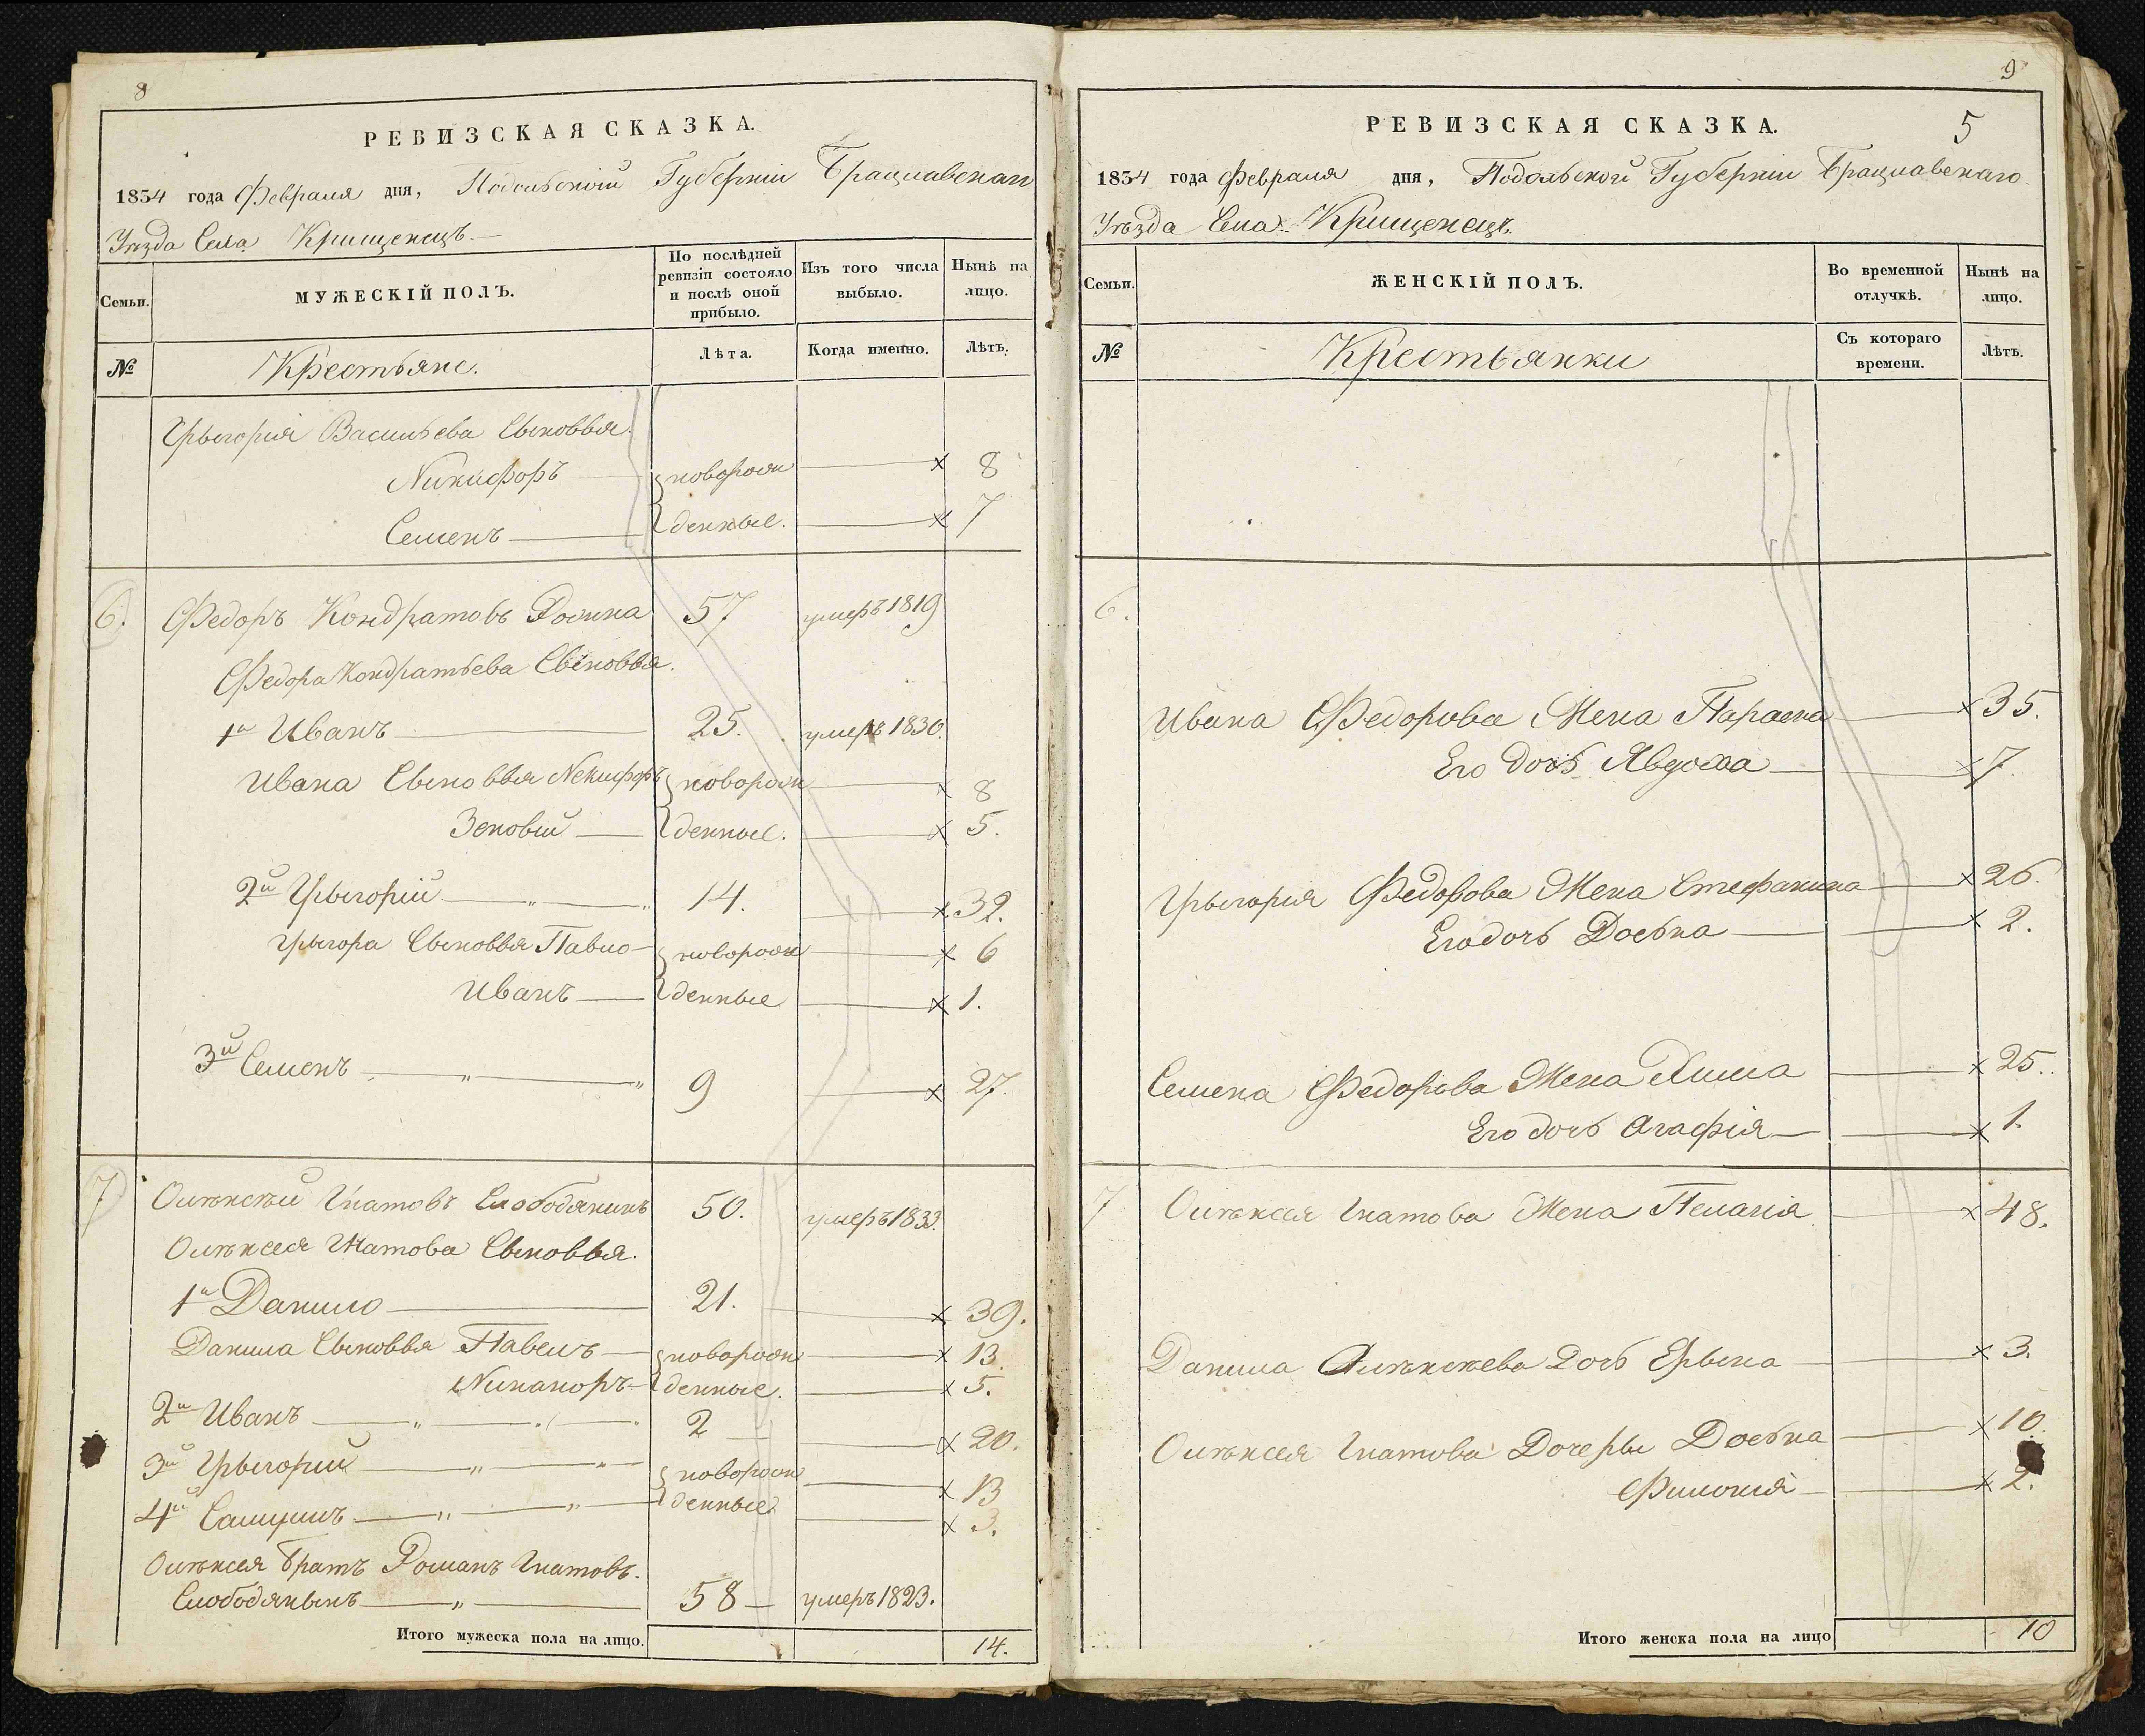 8
РЕВИЗСКАЯ СКАЗКА.
1834 года Февраля дня, Подольской Губерніи Брацлавскаго
Уѣзда Села Крищенецъ.
Семьи.
МУЖЕСКІЙ ПОЛЪ.
По послѣдней ревизіи состояло и послѣ оной прибыло.
Изъ того числа выбыло.
Нынѣ на лицо.
№
Крестьяне.
Лѣта.
Когда именно.
Лѣтъ.
Грыгорія Васильева Сыновья
Никифоръ новорож 8
Семенъ денные. 7
6. Федоръ Кондратовъ 57 умеръ 1819
Федора Кондратьева Сыновья.
1й Иванъ 25. умеръ 1830.
Ивана Сыновья Некифоръ новорож 8
Зеновій денные. 5.
2й Грыгорій 14. 32.
Грыгора Сыновья Павло новорож 6
Иванъ денные 1.
3й Семенъ 9 27.
7 Олѣксѣй Гнатовъ Слободянинъ 50. умеръ 1833.
Олѣксея Гнатова Сыновья.
1й Данило 21. 39.
Данила Сыновья Павелъ новорож 13.
Никаноръ денные. 5.
2й Иванъ 2 20.
3й Грыгорий новорож 13
4й Самуилъ денные 3.
Олѣксея братъ Романъ Гнатовъ.
Слободяныкъ 58 умеръ 1823.
Итого мужеска пола на лицо. 14.
9
5
РЕВИЗСКАЯ СКАЗКА.
1834 года Февраля дня, Подольской Губерніи Брацлавскаго
Уѣзда Села Крищенецъ.
Семьи.
ЖЕНСКІЙ ПОЛЪ.
Во временной отлучкѣ.
Нынѣ на лицо.
№
Крестьянки
Съ котораго времени.
Лѣтъ.
6.
Ивана Федорова Жена Параска 35.
Его дочь Явдоха 7.
Грыгорія Федорова Жена Стефанина 26.
Его дочь Доська 2.
Семена Федорова Жена 25.
Его дочь Агафія 1.
7 Олѣксея Гнатова Жена Пелагія 48.
Данила Олѣксѣева Дочь Ерына 3.
Олѣксея Гнатова Дочеры Доська 10.
2.
Итого женска пола на лицо 10